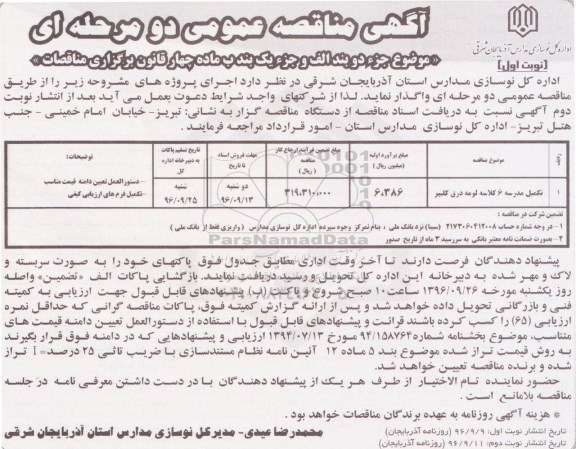 آگهی مناقصه عمومی دو مرحله ای
اداره کل نوسازی مدارس آذربایجان شرقی
(نوبت اول)
« موضوع جزء دو بند الف و جزء یک بند ب ماده چهار قانون برگزاری مناقصات »
اداره کل نوسازی مدارس استان آذربایجان شرقی در نظر دارد اجرای پروژه های مشروحه زیر را از طریق
مناقصه عمومی دو مرحله ای واگذار نماید. لذا از شرکتهای واجد شرایط دعوت بعمل می آید بعد از انتشار نوبت
دوم آگهی نسبت به دریافت اسناد مناقصه از دستگاه مناقصه گزار به نشانی: تبریز- خیابان امام خمینی - جنب
هتل تبریز- اداره کل نوسازی مدارس استان - امور قرارداد مراجعه فرمایند.
ردیف
موضوع مناقصه
مبلغ برآورد اولیه (میلیون ریال)
مبلغ تضمین فرآیند ارجاع کار مناقصه (ریال)
مهلت فروش اسناد تا تاریخ
تاریخ تسلیم پاکات به دبیرخانه اداره کل
توضیحات:
۱
تکمیل مدرسه ۶ کلاسه لومه درق کلیبر
۶،۳۸۶
۳۱۹،۳۱۰،۰۰۰
دو شنبه ۹۶/۰۹/۱۳
شنبه ۹۶/۰۹/۲۵
- دستورالعمل تعیین دامنه قیمت مناسب
- تکمیل فرم های ارزیابی کیفی
تضمین شرکت در مناقصه :
۱- در وجه شماره حساب ۲۱۷۳۰۶۰۴۱۲۰۰۸ (سیبا) نزد بانک ملی، بنام تمرکز وجوه سپرده اداره کل نوسازی مدارس (واریزی فقط از بانک ملی)
۲- بصورت ضمانت نامه معتبر بانکی به سررسید ۳ ماه از تاریخ صدور
پیشنهاد دهندگان فرصت دارند تا آخر وقت اداری مطابق جدول فوق پاکتهای خود را به صورت سربسته و
لاک و مهر شده به دبیرخانه این اداره کل تحویل و رسید دریافت نمایند. بازگشایی پاکات الف «تضمین» واصله
روز یکشنبه مورخه ۱۳۹۶/۰۹/۲۶ ساعت ۱۰ صبح شروع و پاکت (ب) پیشنهادهای قابل قبول جهت ارزیابی به کمیته
فنی و بازرگانی تحویل داده خواهد شد و پس از ارائه گزارش کمیته فوق، پاکات مناقصه گرانی که حداقل نمره
ارزیابی (۶۵) را کسب کرده باشند قرائت و پیشنهادهای قابل قبول با استفاده از دستورالعمل تعیین دامنه قیمت های
متناسب، موضوع بخشنامه شماره ۹۴/۱۵۸۷۶۴ مورخ ۱۳۹۴/۰۷/۱۳ ارزیابی و پیشنهادهایی که در دامنه فوق قرار بگیرند
به روش قیمت تراز شده موضوع بند ۵ ماده ۱۲ آئین نامه نظام مستندسازی با ضریب تاثی ۲۵ درصد= I تراز
شده و برنده مناقصه تعیین خواهد شد.
حضور نماینده تام الاختیار از طرف هر یک از پیشنهاد دهندگان با در دست داشتن معرفی نامه در جلسه
مناقصه بلامانع است.
* هزینه آگهی روزنامه به عهده برندگان مناقصات خواهد بود.
تاریخ انتشار نوبت اول: ۹۶/۹/۹ (روزنامه آذربایجان)
تاریخ انتشار نوبت دوم: ۹۶/۹/۱۱ (روزنامه آذربایجان)
محمدرضا عیدی- مدیر کل نوسازی مدارس استان آذربایجان شرقی
ParsNamadData